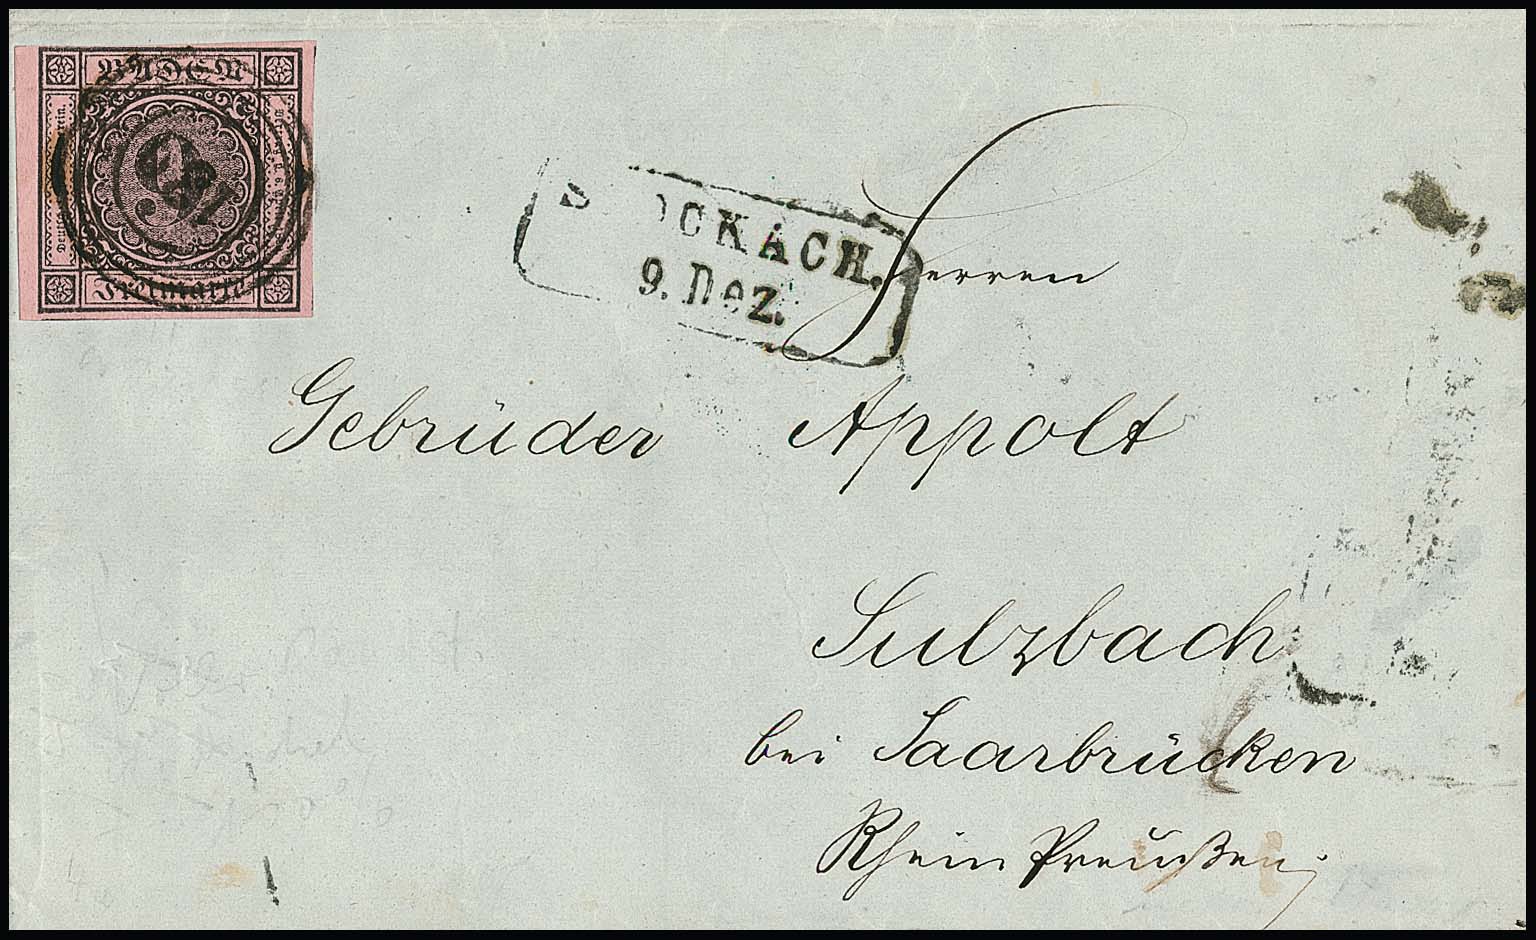 BADEN
9
Freimarke
STOCKACH.
9. Dez.
Herren
Gebrüder Appolt
Sulzbach
bei Saarbrücken
Rhein Preußen.